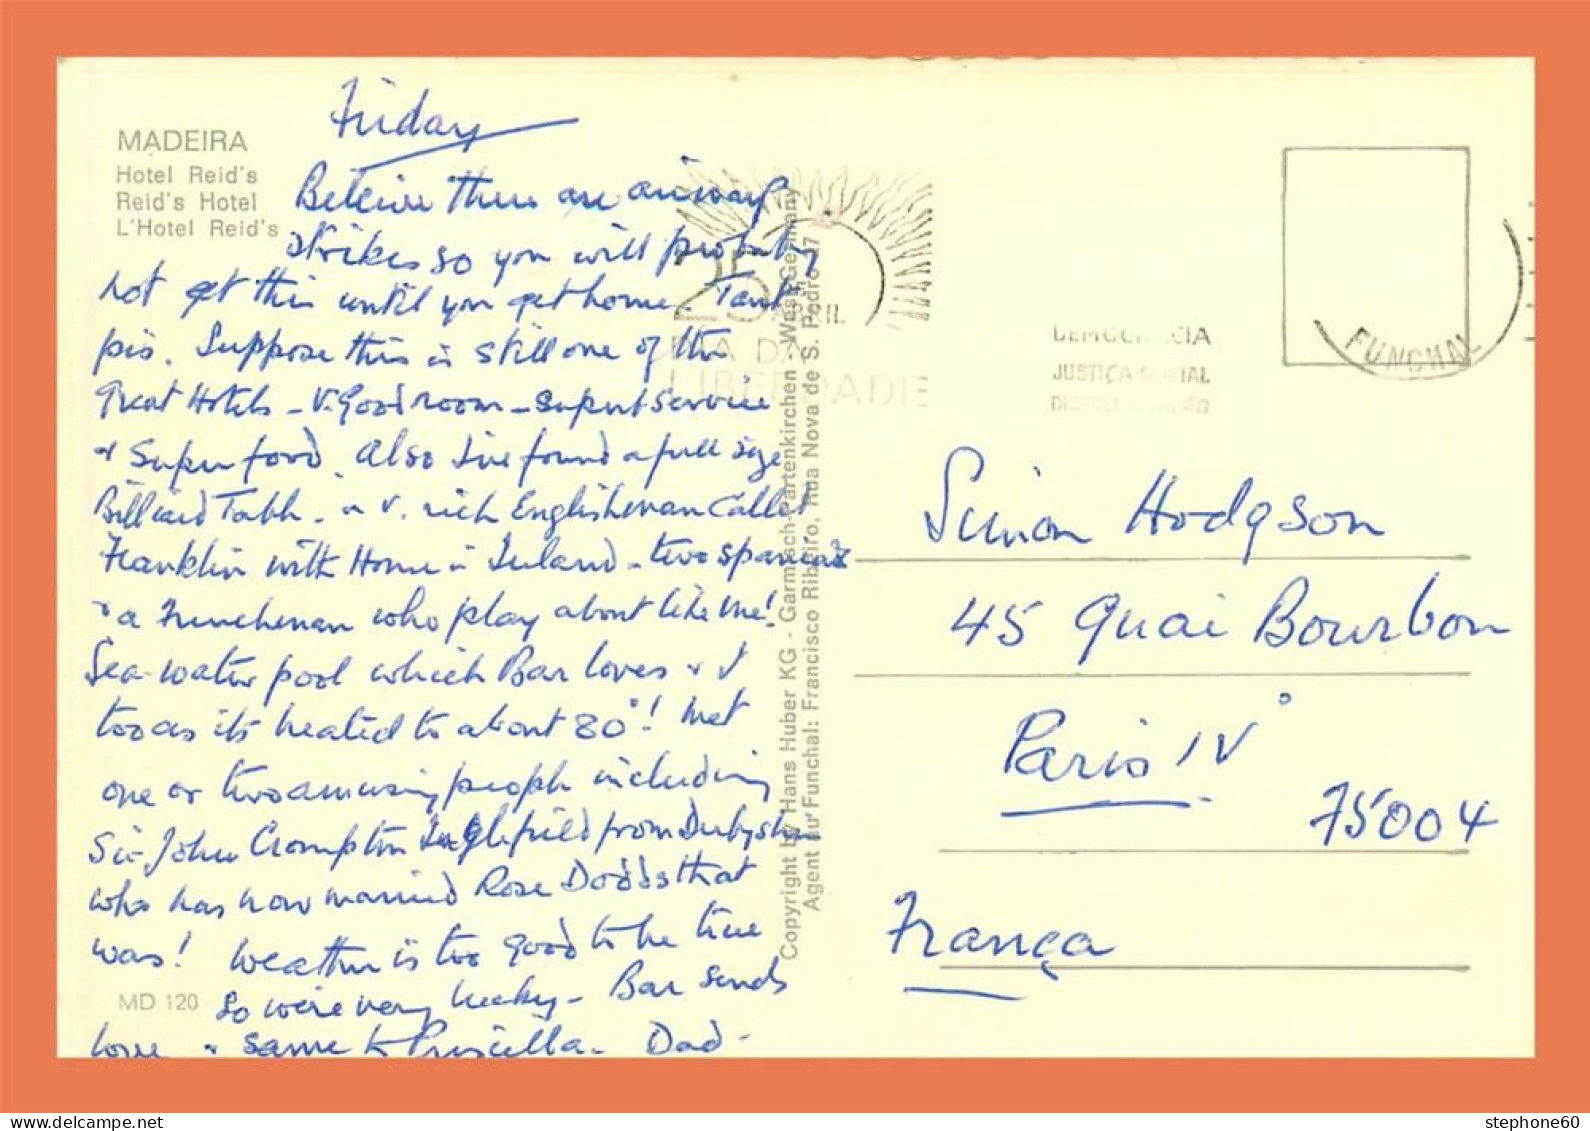 Friday
MADEIRA
Hotel Reid's
Reid's Hotel
L'Hotel Reid's
Believe there are airways
strikes so you will probably
not get this until you get home. Tant
pis. Suppose this is still one of the
Great Hotels - V. Good room - superb service
+ Super food. Also I've found a full size
Billiard Table - a v. rich Englishman called
Franklin with Home in Ireland - two Spaniards
+ a Frenchman who play about like me!
Sea-water pool which Bar loves + I
too as it's heated to about 80°! Met
one or two amusing people including
Sir John Crompton Inglefield from Derbyshire
who has now married Rose Dodds that
was! Weather is too good to be true
so we're very lucky - Bar sends
love + same to Priscilla - Dad -
MD 120
Copyright by Hans Huber KG - Garmisch-Partenkirchen West-Germany
Agent au Funchal: Francisco Ribeiro, Rua Nova de S. Pedro 27
25
ABRIL
DIA DA
LIBERDADE
DEMOCRACIA
JUSTIÇA SOCIAL
FUNCHAL
Simon Hodgson
45 Quai Bourbon
Paris IV°
75004
França
stephone60